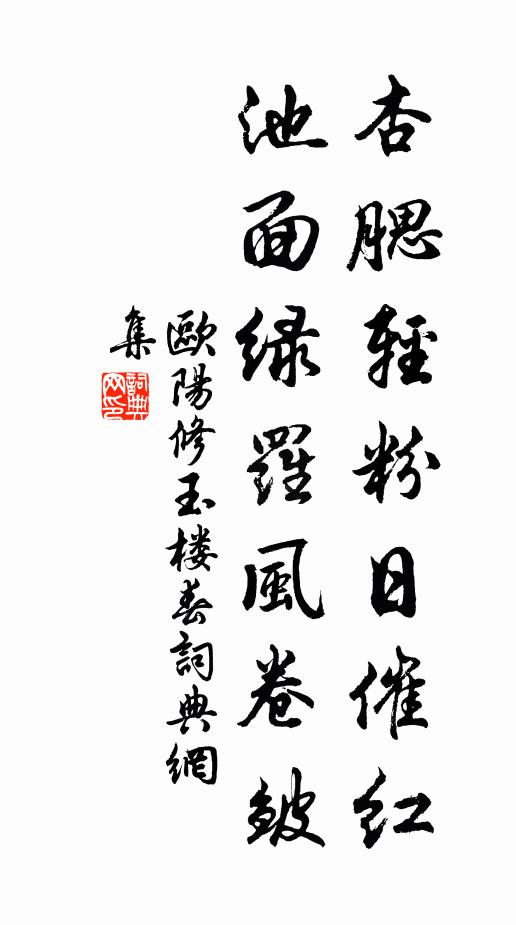 杏腮輕粉日催紅
池面綠羅風卷皺
歐陽修玉楼春詞典網
集
詞典网印